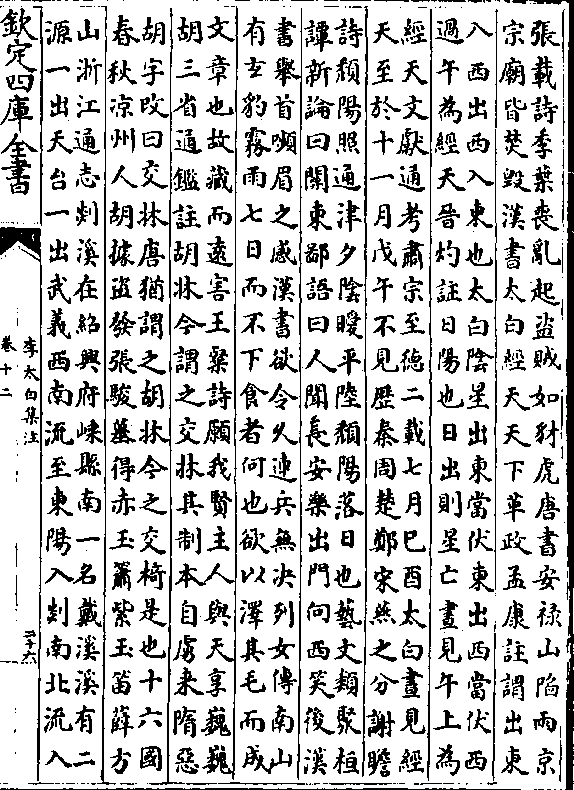 張載詩季葉喪亂起盜賊如豺虎唐書安禄山陷兩京
宗廟皆焚毀漢書太白經天天下革政孟康註謂出東
入西出西入東也太白陰星出東當伏東出西當伏西
過午為經天晉灼註日陽也日出則星亡晝見午上為
經天文獻通考肅宗至德二載七月己酉太白晝見經
天至於十一月戊午不見歷秦周楚鄭宋燕之分謝瞻
詩頹陽照通津夕陰曖平陸頹陽落日也藝文類聚桓
譚新論曰關東鄙語曰人聞長安樂出門向西笑後漢
書舉首嚬眉之感漢書欲令久連兵無决列女傳南山
有玄豹霧雨七日而不下食者何也欲以澤其毛而成
文章也故藏而遠害王粲詩願我賢主人與天享巍巍
胡三省通鑑註胡牀今謂之交牀其制本自虜來隋惡
胡字改曰交牀唐猶謂之胡牀今之交椅是也十六國
春秋凉州人胡據盜發張駿墓得赤玉簫紫玉笛薛方
山浙江通志剡溪在紹興府嵊縣南一名戴溪溪有二
源一出天台一出武義西南流至東陽入剡南北流入
欽定四庫全書
李太白集注
卷十二
三十六